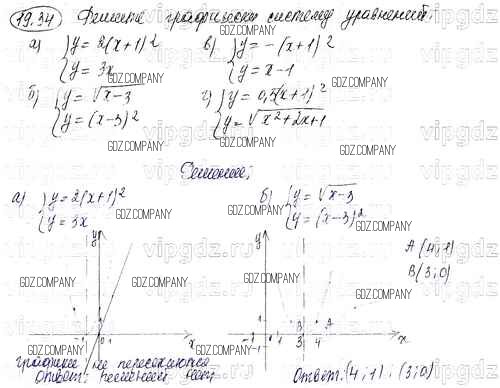 19.34 Решите графически систему уравнений:
а) { y = 2(x+1)²
{ y = 3x
в) { y = -(x+1)²
{ y = x-1
б) { y = √x-3
{ y = (x-3)²
г) { y = 0,5(x+1)²
{ y = √x²+2x+1
Решение:
а) { y = 2(x+1)²
{ y = 3x
б) { y = √x-3
{ y = (x-3)²
A (4; 1)
B (3; 0)
y
x
-1 0 1
y
x
-1 1 3 4
B A
графики не пересекаются
Ответ: решений нет
Ответ: (4; 1); (3; 0)
GDZ.COMPANY
vipgdz.ru